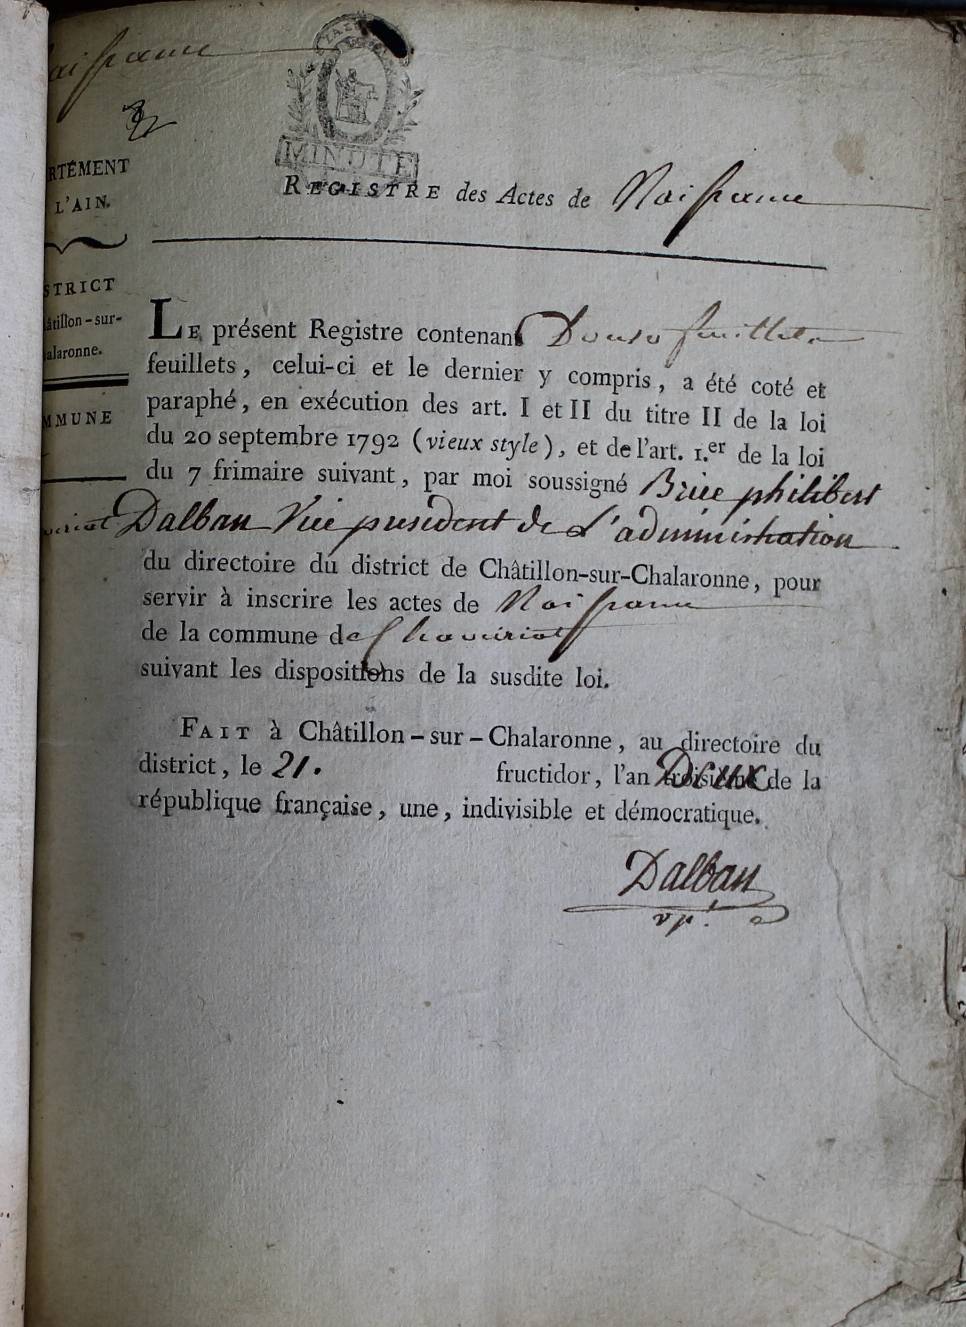 MINUTE
REGISTRE des Actes de Naissance
RTEMENT
L'AIN.
STRICT
âtillon-sur-
alaronne.
MMUNE
LE présent Registre contenant Douse feuillets
feuillets, celui-ci et le dernier y compris, a été coté et
paraphé, en exécution des art. I et II du titre II de la loi
du 20 septembre 1792 (vieux style), et de l'art. 1.er de la loi
du 7 frimaire suivant, par moi soussigné Brice philibert
Dalban Vice president de L'administration
du directoire du district de Châtillon-sur-Chalaronne, pour
servir à inscrire les actes de Naissance
de la commune de Chaveiriat
suivant les dispositions de la susdite loi.
FAIT à Châtillon-sur-Chalaronne, au directoire du
district, le 21. fructidor, l'an Deux de la
république française, une, indivisible et démocratique.
Dalban
vp.